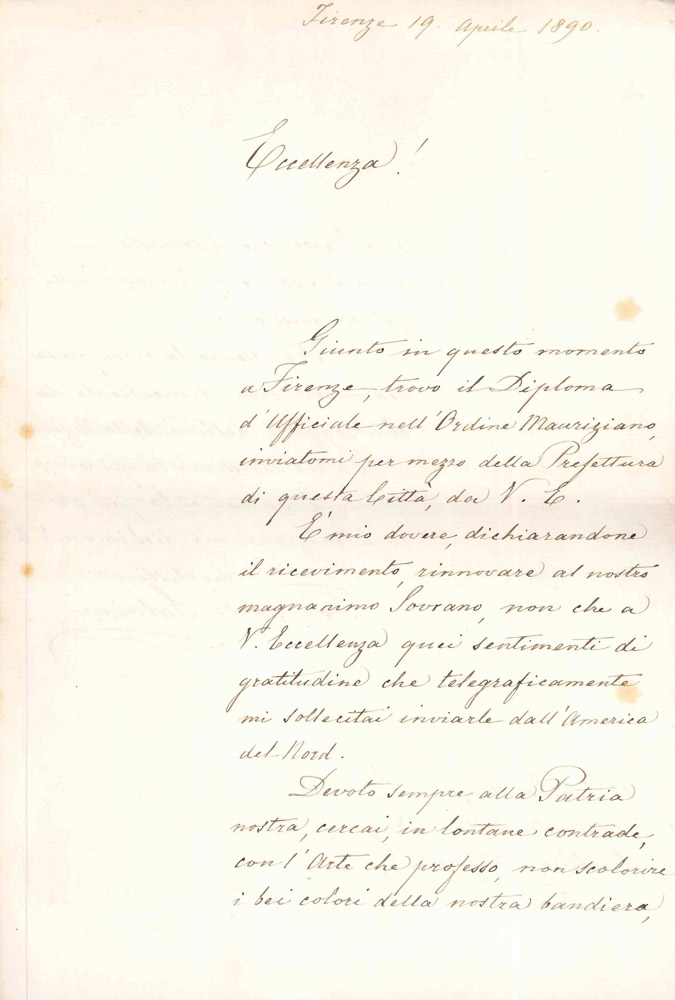 Firenze 19. Aprile 1890.
Eccellenza!
Giunto in questo momento
a Firenze, trovo il Diploma
d'Ufficiale nell'Ordine Mauriziano,
inviatomi per mezzo della Prefettura
di questa Città, da V. E.
E' mio dovere, dichiarandone
il ricevimento, rinnovare al nostro
magnanimo Sovrano, non che a
V. Eccellenza quei sentimenti di
gratitudine che telegraficamente
mi sollecitai inviarle dall'America
del Nord.
Devoto sempre alla Patria
nostra, cercai, in lontane contrade,
con l'Arte che professo, non scolorire
i bei colori della nostra bandiera,